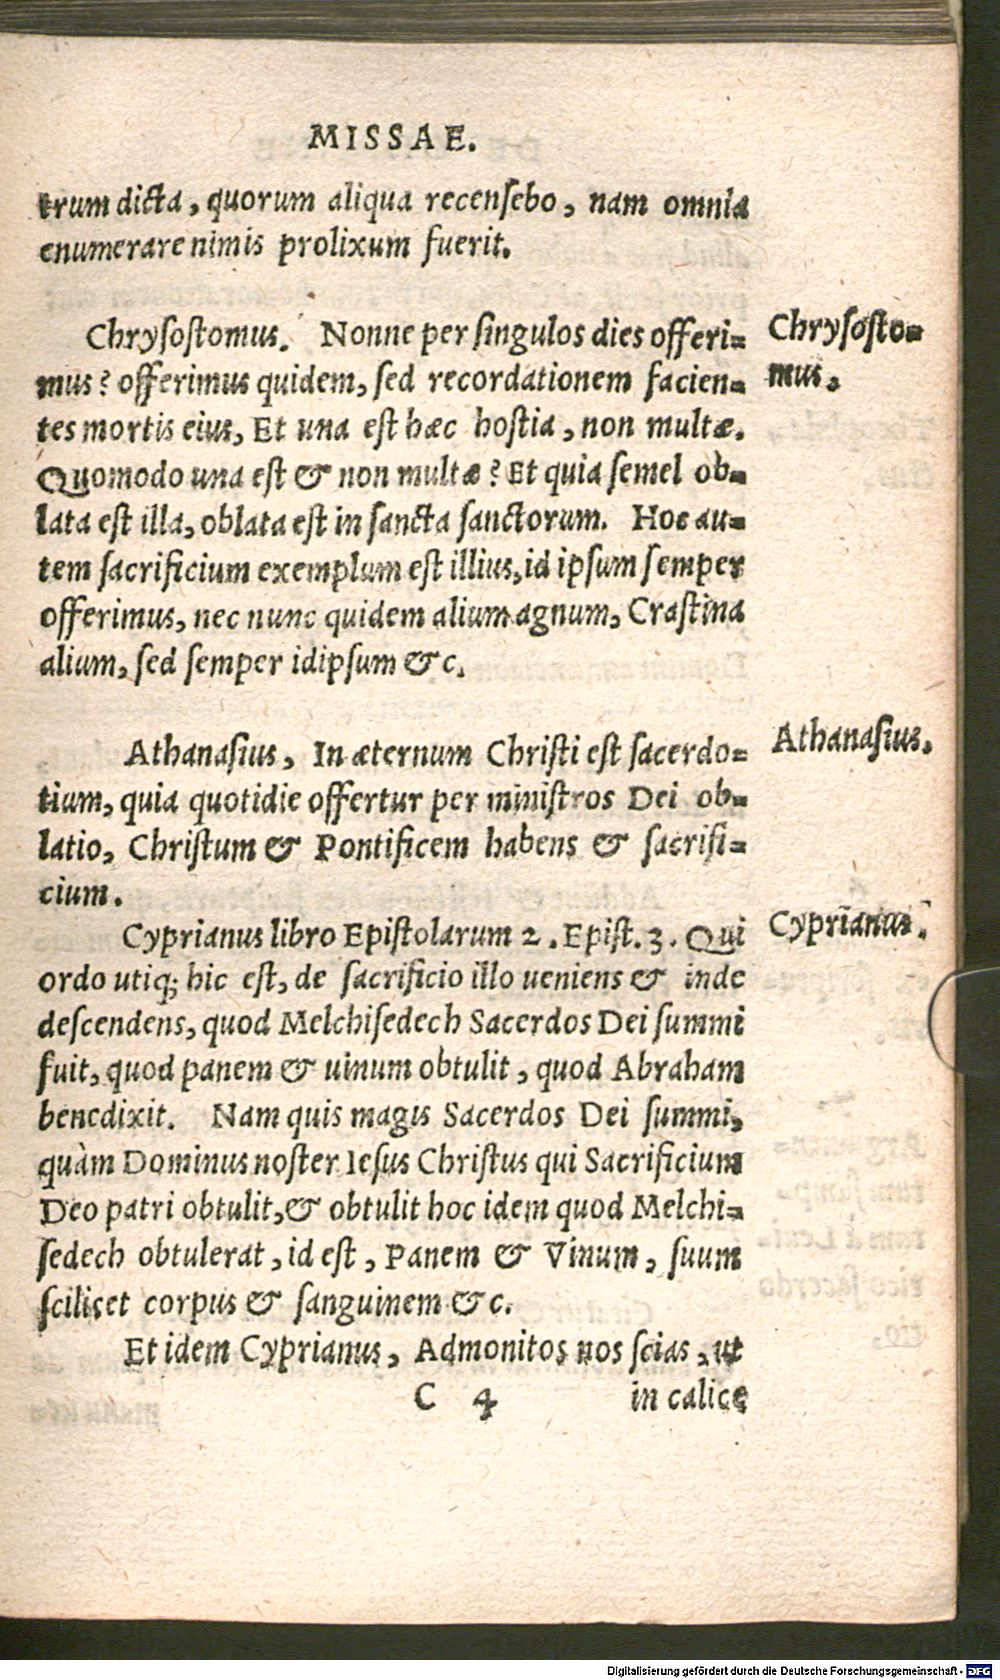 MISSAE.
trum dicta, quorum aliqua recensebo, nam omnia
enumerare nimis prolixum fuerit.
Chrysostomus. Nonne per singulos dies offeri-
mus? offerimus quidem, sed recordationem facien-
tes mortis eius, Et una est hæc hostia, non multæ.
Quomodo una est & non multæ? Et quia semel ob-
lata est illa, oblata est in sancta sanctorum. Hoc au-
tem sacrificium exemplum est illius, id ipsum semper
offerimus, nec nunc quidem alium agnum, Crastina
alium, sed semper idipsum &c.
Chrysosto-
mus.
Athanasius, In æternum Christi est sacerdo-
tium, quia quotidie offertur per ministros Dei ob-
latio, Christum & Pontificem habens & sacrifi-
cium.
Athanasius.
Cyprianus libro Epistolarum 2. Epist. 3. Qui
ordo utiq; hic est, de sacrificio illo ueniens & inde
descendens, quod Melchisedech Sacerdos Dei summi
fuit, quod panem & uinum obtulit, quod Abraham
benedixit. Nam quis magis Sacerdos Dei summi,
quàm Dominus noster Iesus Christus qui Sacrificium
Deo patri obtulit, & obtulit hoc idem quod Melchi-
sedech obtulerat, id est, Panem & Vinum, suum
scilicet corpus & sanguinem &c.
Cyprianus.
Et idem Cyprianus, Admonitos nos scias, ut
C 4 in calice
Digitalisierung gefördert durch die Deutsche Forschungsgemeinschaft - DFG